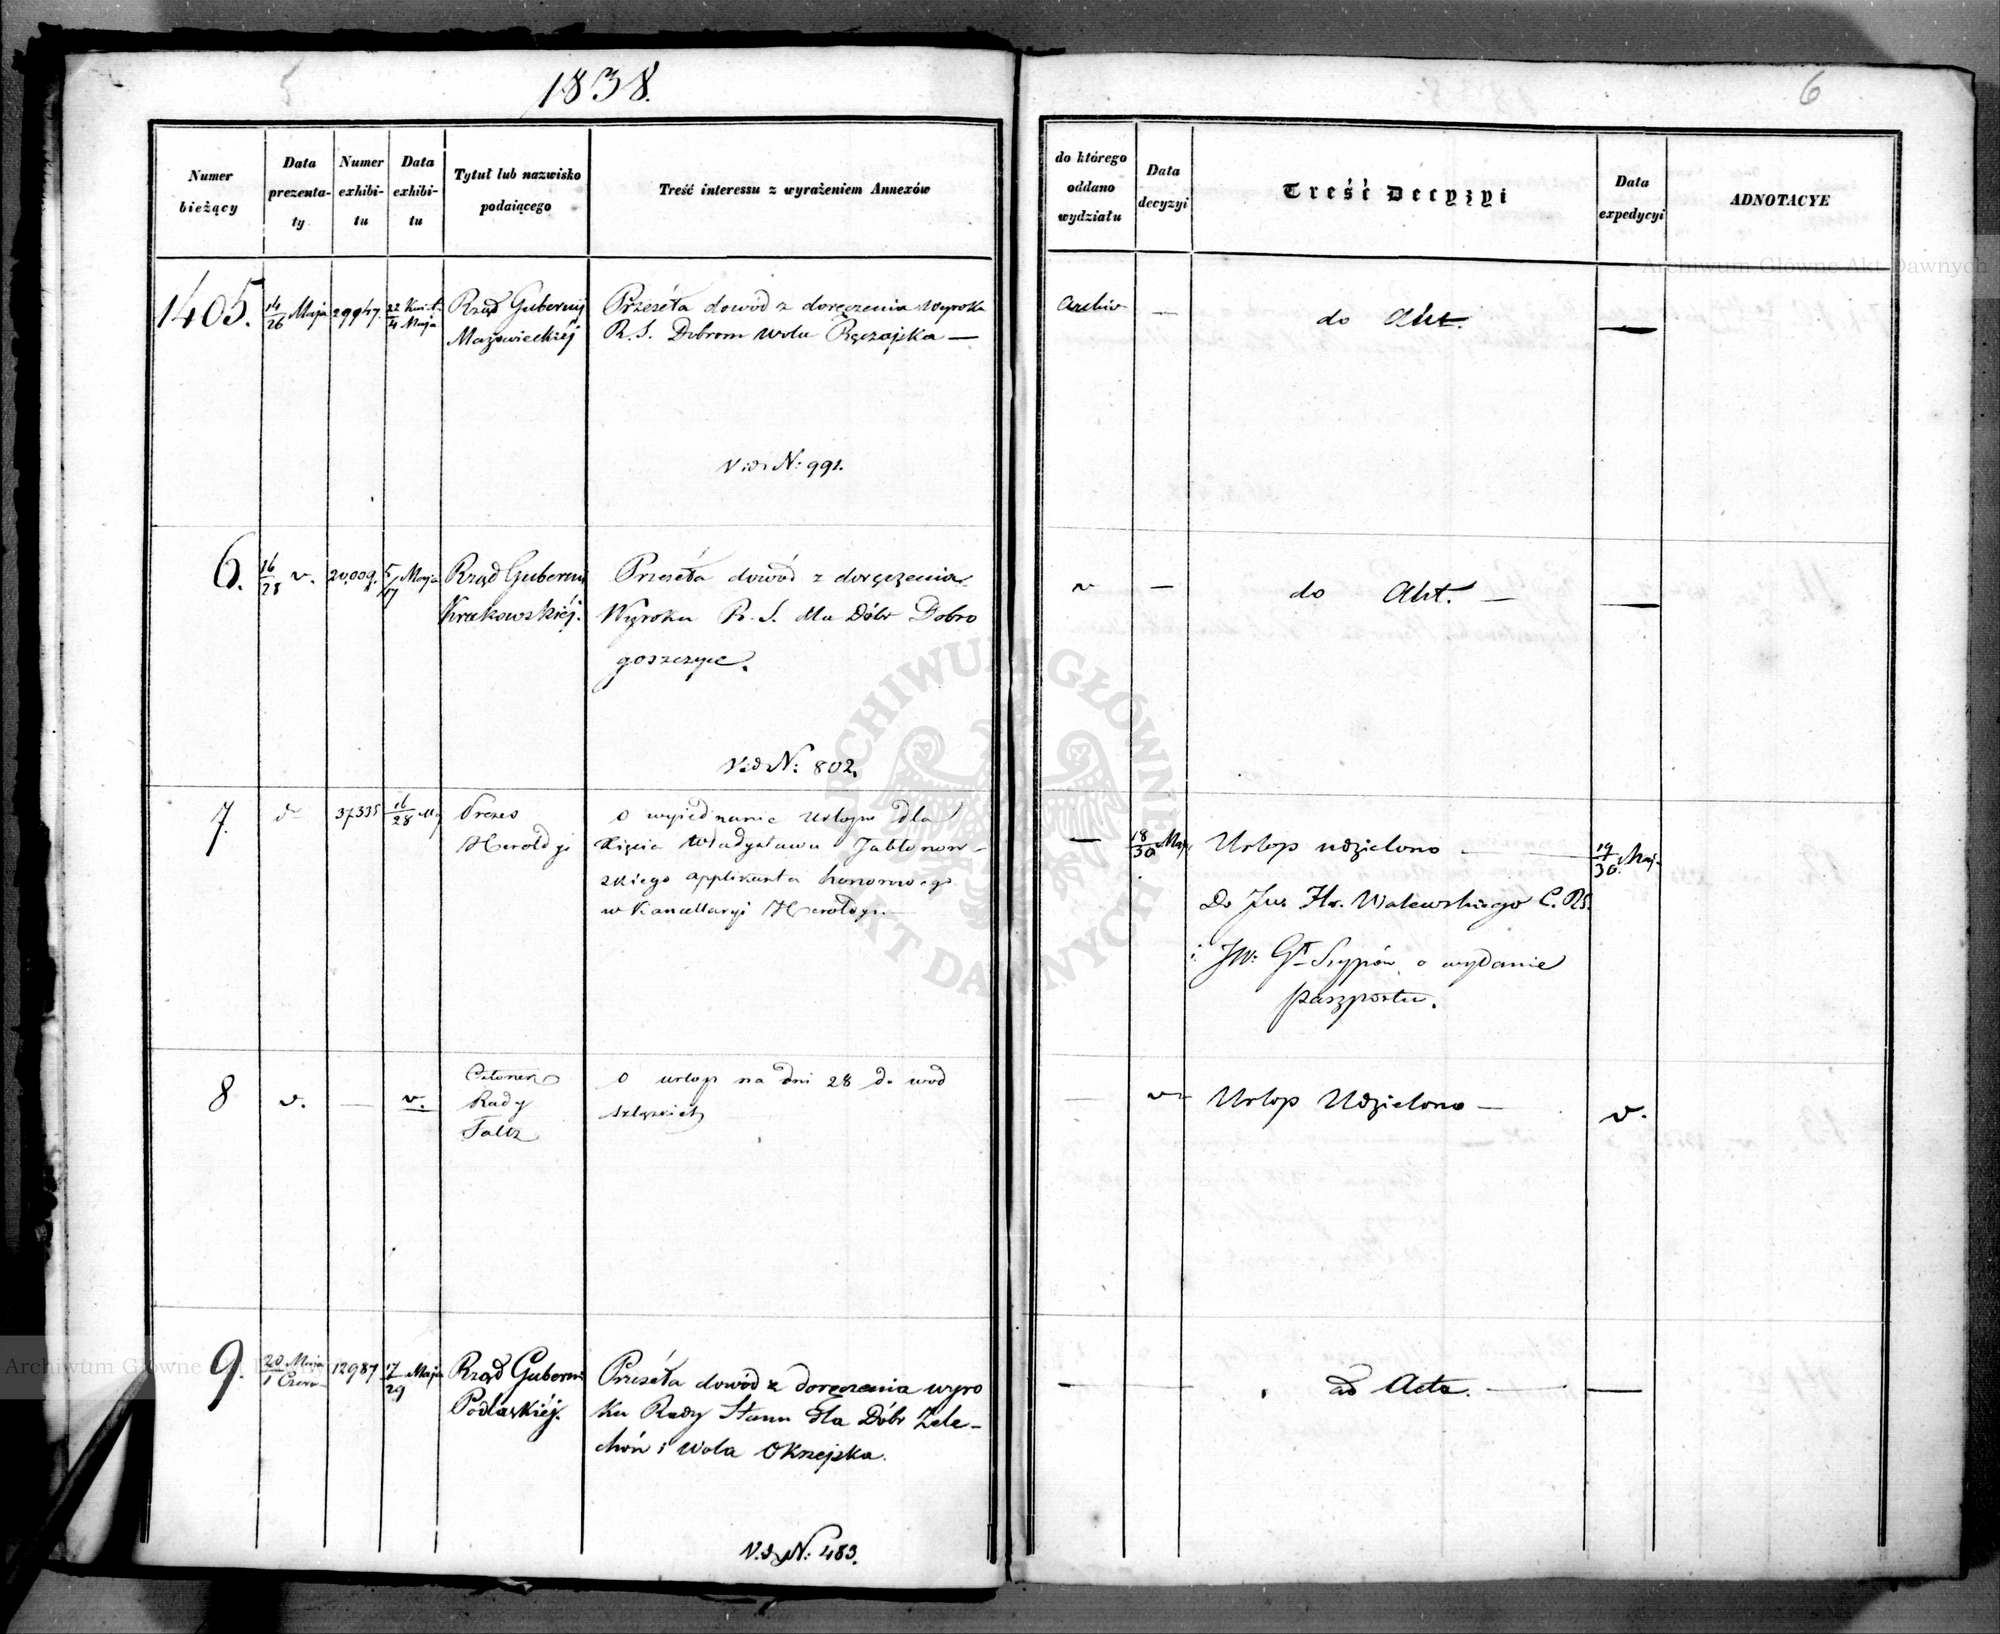 5
1838.
6
Numer bieżący
Data prezenta-ty
Numer exhibi-tu
Data exhibi-tu
Tytuł lub nazwisko podaiącego
Treść interessu z wyrażeniem Annexów
do którego oddano wydziału
Data decyzyi
Treść Decyzyi
Data expedycyi
ADNOTACYE
1405.
14/26 Maja
29947.
22 Kwiet./4 Maja
Rząd Gubernij
Mazowieckiéj
Przeséła dowód z doręczenia Wyroku
R. S. Dobrom Wola Ręczajska —
Vide N: 991.
Archiw
—
do Akt.
—
6.
16/28 v.
20,009.
5/17 Maja
Rząd Gubernii
Krakowskiéj.
Przeséła dowód z doręczenia
Wyroku R. S. dla Dóbr Dobro
goszczyce.
Vide N: 802.
v
—
do Akt. —
—
7.
d
37335
16/28 Maj
Prezes
Heroldyi
O wyiednanie Urlopu dla
Xięcia Władysława Jabłonow-
skiego applikanta honorowego
w Kancellaryi Heroldyi. —
—
18/30 Maja
Urlop udzielono —
Do Jws Hr. Walewskiego C. RS.
i JW: Gł Szypów o wydanie
paszportu.
19/30. Maja
8
v.
—
v.
Członek
Rady
Faltz
O urlop na dni 28 do wód
szląskich
—
v
Urlop Udzielono —
v.
9.
20 Maja/1 Czerw
12987
17/29 Maja
Rząd Guberni
Podlaskiéj.
Przeséła dowód z doręczenia wyro
ku Rady Stanu dla Dóbr Żele-
chów i Wola Okrzejska.
Vide N: 483.
—
ad Acta. —
—
Archiwum Główne Akt Dawnych
Archiwum Główne Akt Dawnych
ARCHIWUM GŁÓWNE AKT DAWNYCH